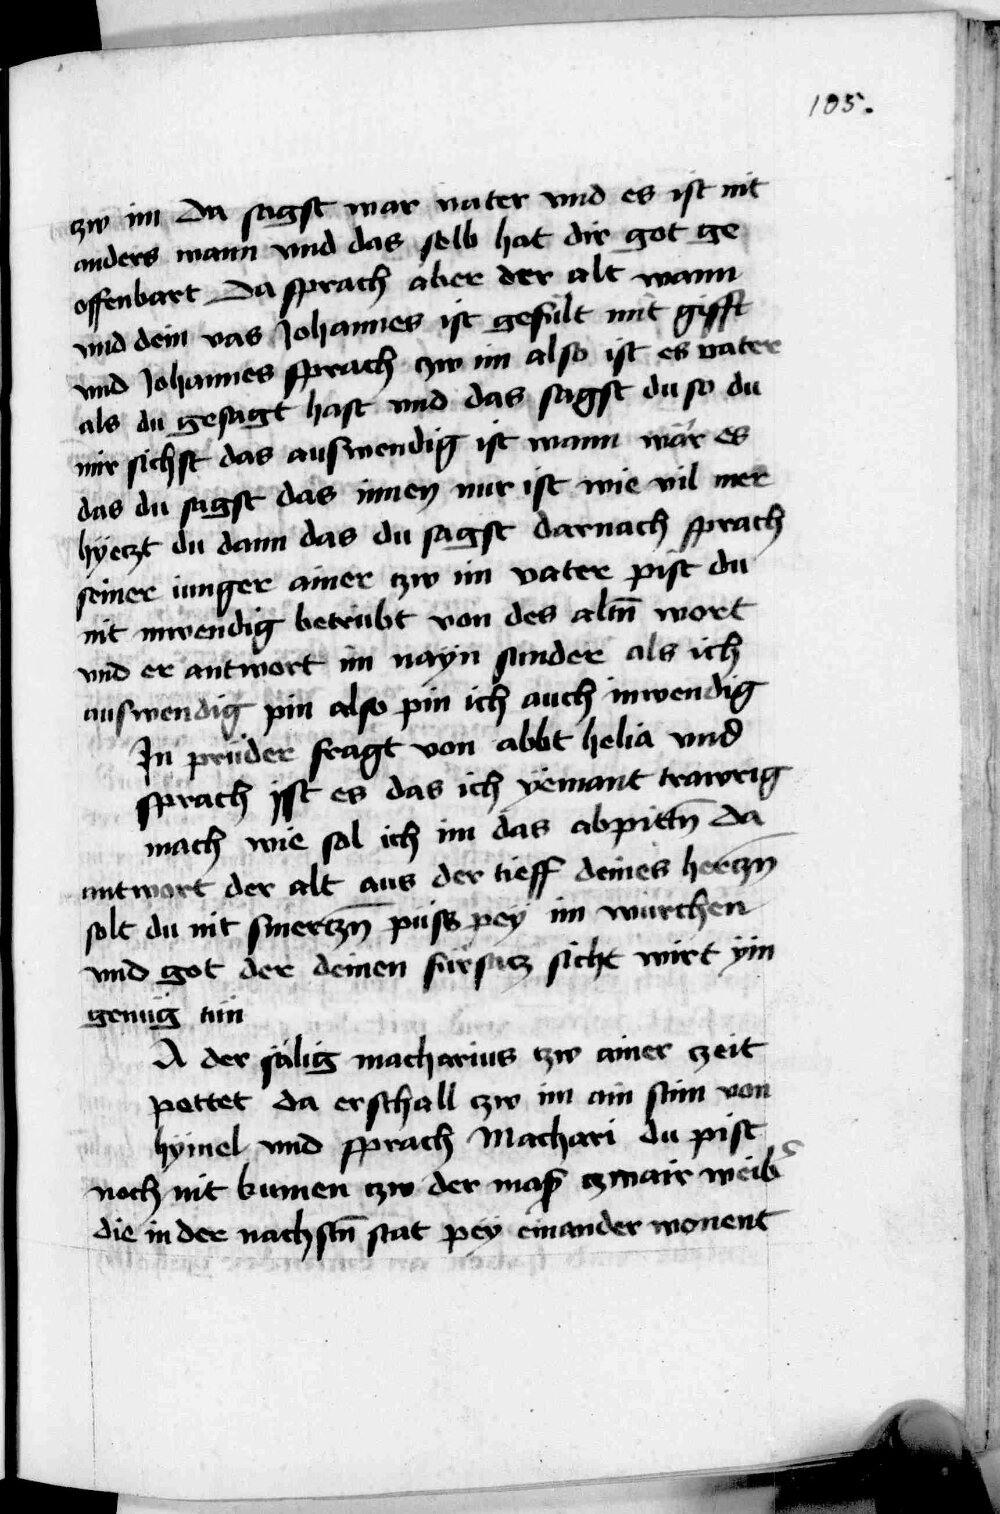 105.
tzw im Da sagst war vater vnd es ist nit
anders wann vnd das selb hat dir got ge
offenbart Da sprach aber der alt wann
vnd dein vas Johannes ist gefült mit gifft
vnd Johannes sprach tzw im also ist es vater
als du gesagt hast vnd das sagst du so du
mir sichst das auswendig ist wann wär es
das du sagst das innen mir ist wie vil mer
hyetzt du dann das du sagst darnach sprach
seiner iunger ainer tzw im vater pist du
nit inwendig betrübt von des altn̄ wort
vnd er antwort im nayn sunder als ich
auswendig pin also pin ich auch inwendig
In prüder fragt von abbt helia vnd
sprach ist es das ich yemant trawrig
mach wie sol ich im das abpittn̄ Da
antwort der alt aus der tieff deines hertzn̄
solt du mit smertzn̄ püss pey im würchen
vnd got der deinen fürsatz sicht wirt yin
genüg tün
A der sälig macharius tzw ainer tzeit
pettet da erschall tzw im ain stim von
hymel vnd sprach Machari du pist
noch nit kumen tzw der mass tzwair weib
die in der nachstn̄ stat pey einander wonent